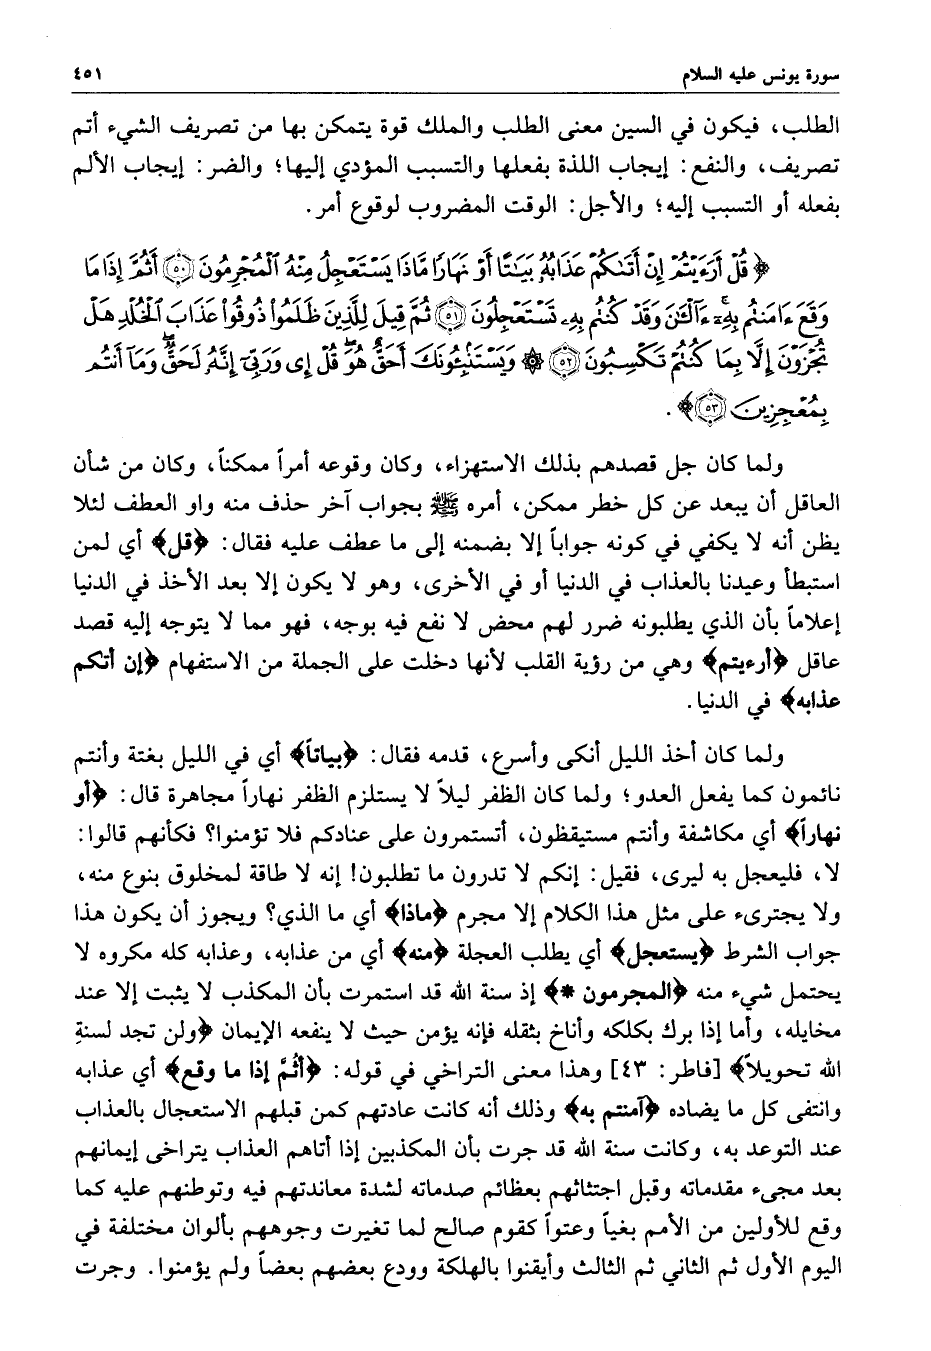 سورة يونس عليه السلام ٤٥١
الطلب، فيكون في السين معنى الطلب والملك قوة يتمكن بها من تصريف الشيء أتم
تصريف، والنفع: إيجاب اللذة بفعلها والتسبب المؤدي إليها؛ والضر: إيجاب الألم
بفعله أو التسبب إليه؛ والأجل: الوقت المضروب لوقوع أمر.
﴿قُلْ أَرَءَيْتُمْ إِنْ أَتَىٰكُمْ عَذَابُهُۥ بَيَٰتًا أَوْ نَهَارًا مَّاذَا يَسْتَعْجِلُ مِنْهُ ٱلْمُجْرِمُونَ ۝٥٠ أَثُمَّ إِذَا مَا
وَقَعَ ءَامَنتُم بِهِۦٓ ءَآلْـَٰٔنَ وَقَدْ كُنتُم بِهِۦ تَسْتَعْجِلُونَ ۝٥١ ثُمَّ قِيلَ لِلَّذِينَ ظَلَمُوا۟ ذُوقُوا۟ عَذَابَ ٱلْخُلْدِ هَلْ
تُجْزَوْنَ إِلَّا بِمَا كُنتُمْ تَكْسِبُونَ ۝٥٢ ۞ وَيَسْتَنۢبِـُٔونَكَ أَحَقٌّ هُوَ ۖ قُلْ إِى وَرَبِّىٓ إِنَّهُۥ لَحَقٌّ ۖ وَمَآ أَنتُم
بِمُعْجِزِينَ ۝٥٣﴾.
ولما كان جل قصدهم بذلك الاستهزاء، وكان وقوعه أمراً ممكناً، وكان من شأن
العاقل أن يبعد عن كل خطر ممكن، أمره ﷺ بجواب آخر حذف منه واو العطف لئلا
يظن أنه لا يكفي في كونه جواباً إلا بضمنه إلى ما عطف عليه فقال: ﴿قل﴾ أي لمن
استبطأ وعيدنا بالعذاب في الدنيا أو في الأخرى، وهو لا يكون إلا بعد الأخذ في الدنيا
إعلاماً بأن الذي يطلبونه ضرر لهم محض لا نفع فيه بوجه، فهو مما لا يتوجه إليه قصد
عاقل ﴿أرءيتم﴾ وهي من رؤية القلب لأنها دخلت على الجملة من الاستفهام ﴿إن أتٰكم
عذابه﴾ في الدنيا.
ولما كان أخذ الليل أنكى وأسرع، قدمه فقال: ﴿بياتاً﴾ أي في الليل بغتة وأنتم
نائمون كما يفعل العدو؛ ولما كان الظفر ليلاً لا يستلزم الظفر نهاراً مجاهرة قال: ﴿أو
نهاراً﴾ أي مكاشفة وأنتم مستيقظون، أتستمرون على عنادكم فلا تؤمنوا؟ فكأنهم قالوا:
لا، فليعجل به ليرى، فقيل: إنكم لا تدرون ما تطلبون! إنه لا طاقة لمخلوق بنوع منه،
ولا يجترىء على مثل هذا الكلام إلا مجرم ﴿ماذا﴾ أي ما الذي؟ ويجوز أن يكون هذا
جواب الشرط ﴿يستعجل﴾ أي يطلب العجلة ﴿منه﴾ أي من عذابه، وعذابه كله مكروه لا
يحتمل شيء منه ﴿المجرمون *﴾ إذ سنة الله قد استمرت بأن المكذب لا يثبت إلا عند
مخايله، وأما إذا برك بكلكه وأناخ بثقله فإنه يؤمن حيث لا ينفعه الإيمان ﴿ولن تجد لسنةِ
الله تحويلاً﴾ [فاطر: ٤٣] وهذا معنى التراخي في قوله: ﴿أثُمَّ إذا ما وقع﴾ أي عذابه
وانتفى كل ما يضاده ﴿آمنتم به﴾ وذلك أنه كانت عادتهم كمن قبلهم الاستعجال بالعذاب
عند التوعد به، وكانت سنة الله قد جرت بأن المكذبين إذا أتاهم العذاب يتراخى إيمانهم
بعد مجيء مقدماته وقبل اجتثاثهم بعظائم صدماته لشدة معاندتهم فيه وتوطنهم عليه كما
وقع للأولين من الأمم بغياً وعتواً كقوم صالح لما تغيرت وجوههم بألوان مختلفة في
اليوم الأول ثم الثاني ثم الثالث وأيقنوا بالهلكة وودع بعضهم بعضاً ولم يؤمنوا. وجرت